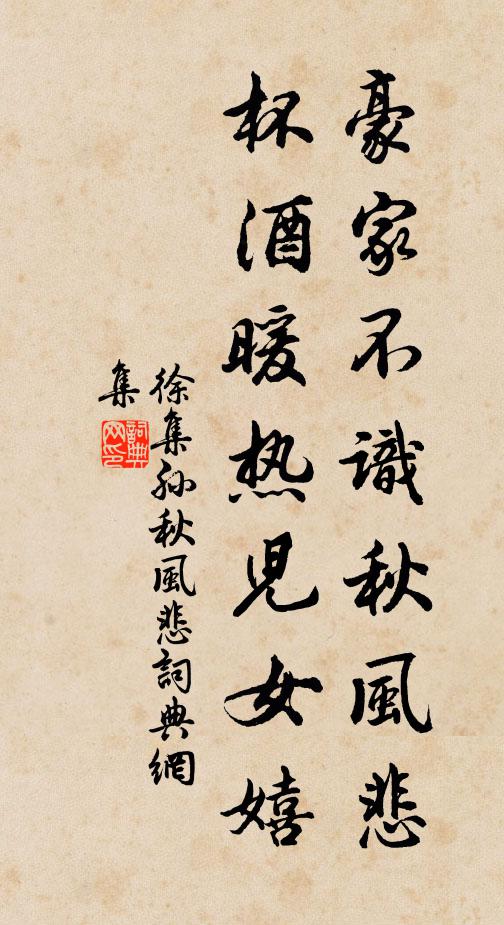 豪家不識秋風悲
杯酒暖热児女嬉
徐集孙秋風悲詞典網
集
詞典
网印